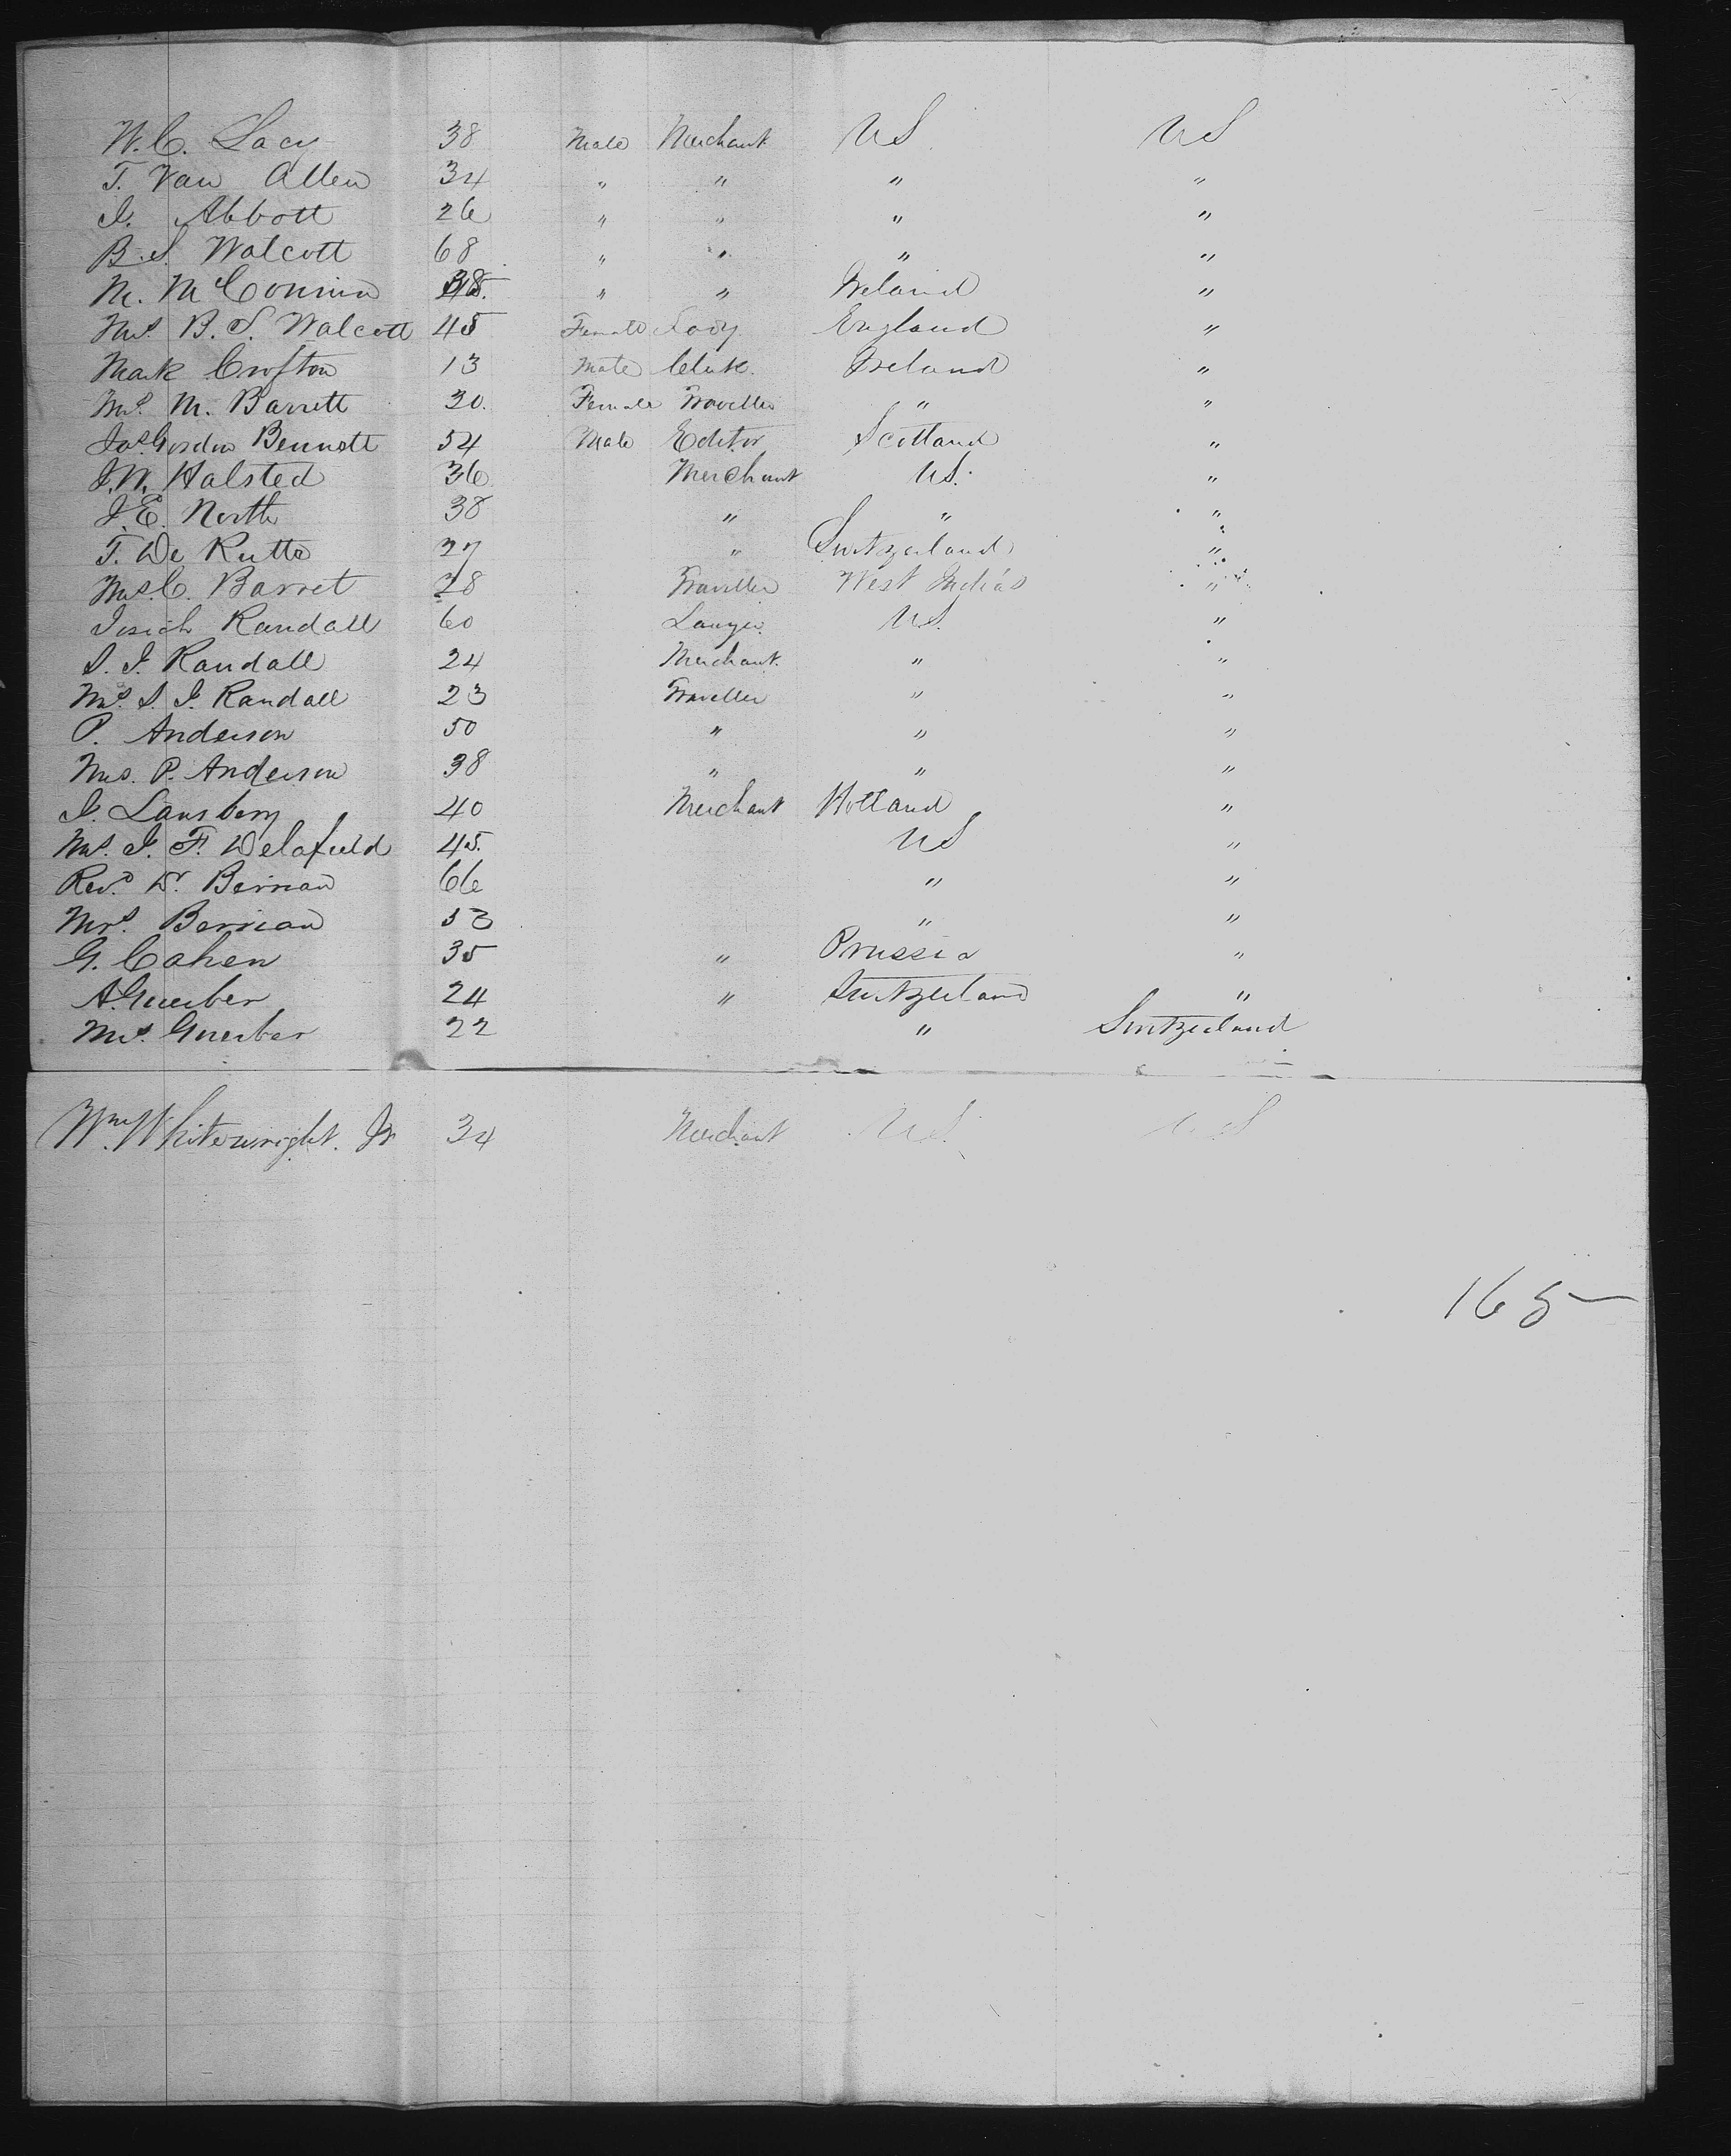 W. C. Lacy 38 Male Merchant US US
T. Van Allen 34 " " " "
J. Abbott 26 " " " "
B. S. Walcott 68 " " " "
M. McConnin " " Ireland "
Mrs. B. S. Walcott 45 Female Lady England "
Mark Crofton 13 Male Clerk. Ireland "
Mrs. M. Barrett 30. Female Traveller " "
Jas. Gordon Bennett 54 Male Editor Scotland "
J. W. Halsted 36 Merchant US. "
J. E. North 38 " " "
T. De Rutte 27 " Switzerland "
Mrs. C. Barret 28 Traveller West Indias "
Josiah Randall 60 Lawyer US. "
S. J. Randall 24 Merchant. " "
Mrs. S. J. Randall 23 Traveller " "
P. Anderson 50 " " "
Mrs. P. Anderson 38 " " "
J. Lansberg 40 Merchant Holland "
Mrs. J. F. Delafield 45. US "
Revd. Dr. Berrian 66 " "
Mrs. Berrian 53 " "
G. Cohen 35 " Prussia "
A. Guerber 24 " Switzerland "
Mrs. Guerber 22 " Switzerland
Wm. Whitewright. Jr 34 Merchant US. US
165